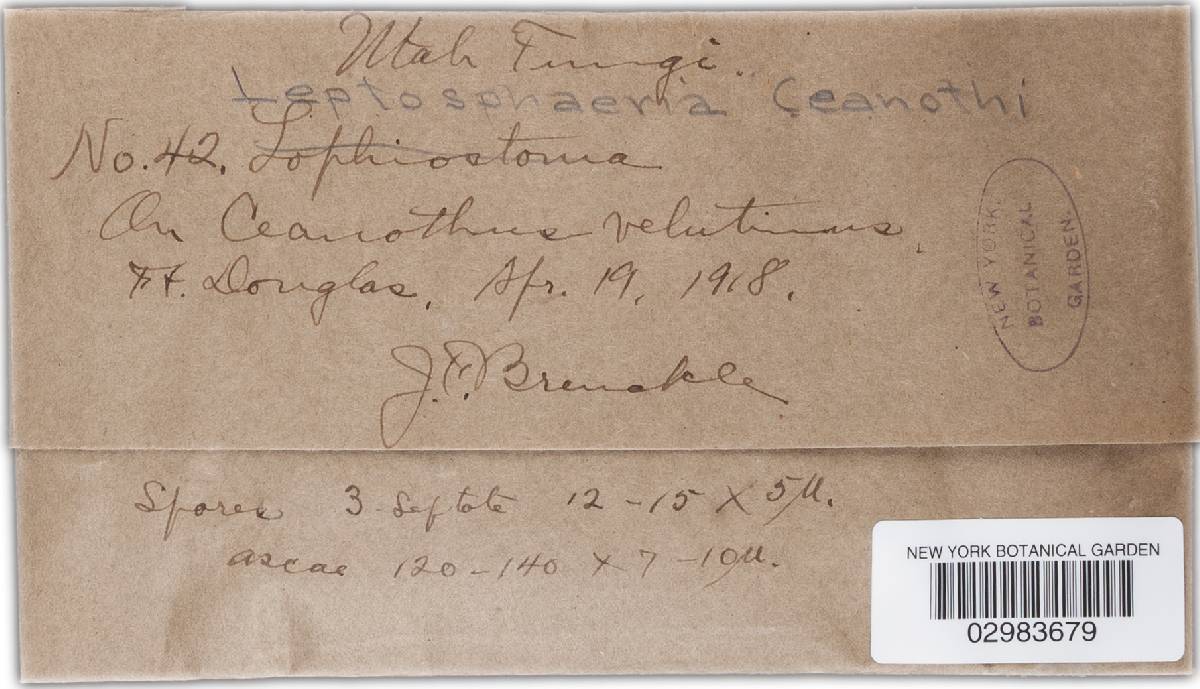 Utah Fungi.
Leptosphaeria Ceanothi
No. 42. Lophiostoma
On Ceanothus velutinus,
Ft. Douglas, Apr. 19, 1918.
J. F. Brenckle
NEW YORK
BOTANICAL
GARDEN
Spores 3-Septate 12-15 X 5µ.
ascae 120-140 X 7-10µ.
NEW YORK BOTANICAL GARDEN
02983679